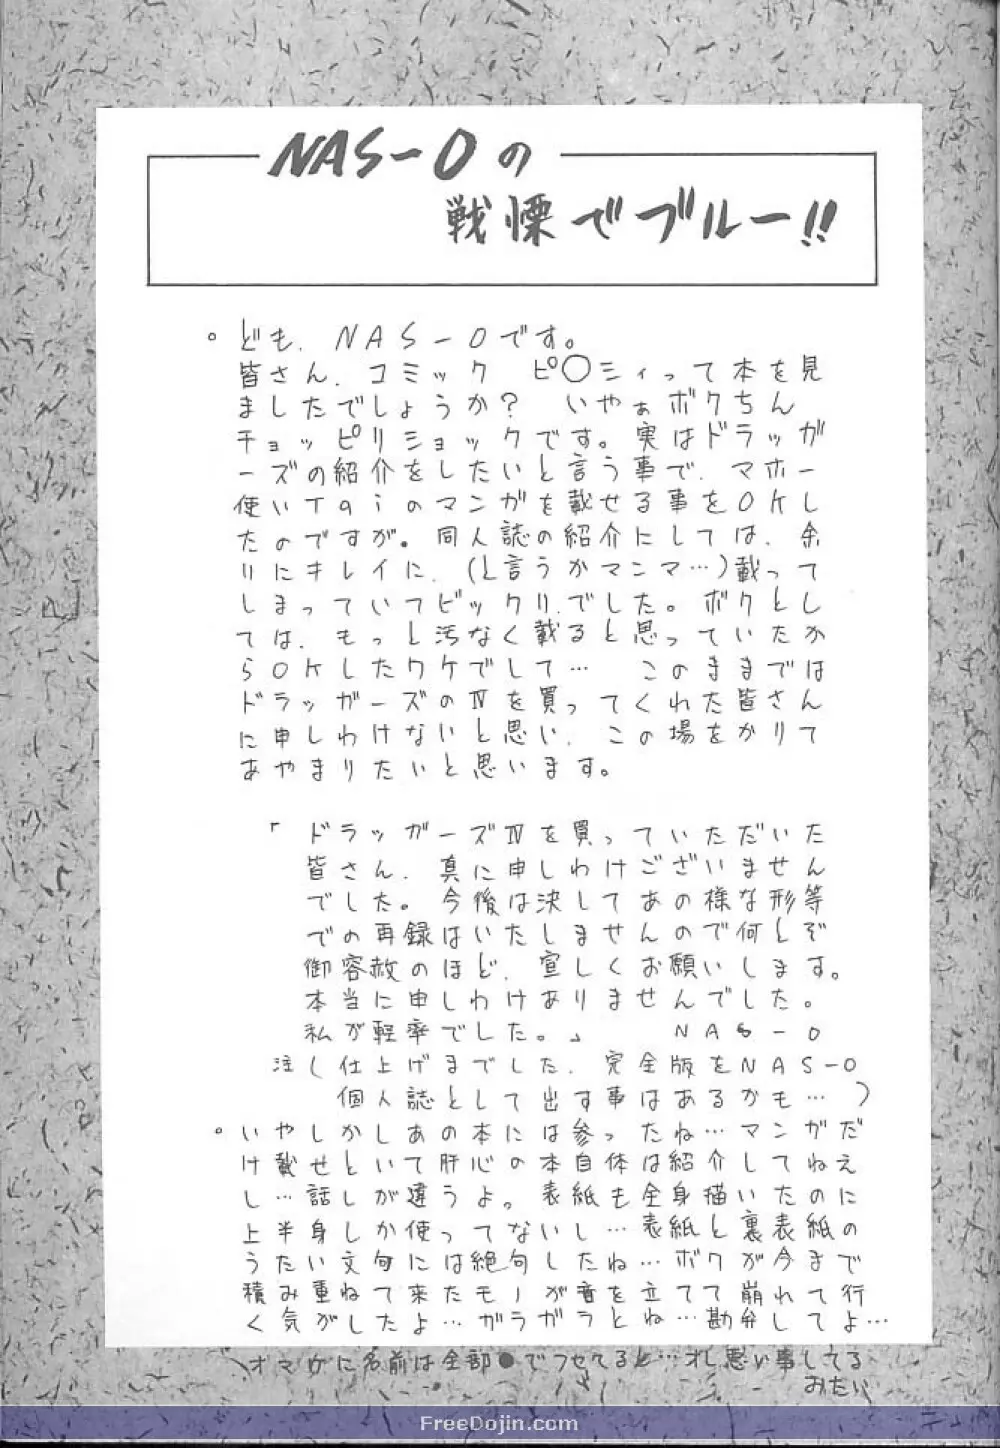 NAS-Oの
戦慄でブルー!!
。ども、NAS-Oです。
皆さん、コミック ピ〇シィって本を見
ましたでしょうか? いやぁボクちん
チョッピリショックです。実はドラッガ
ーズの紹介をしたいと言う事で、マホー
使いTaiのマンガを載せる事をOKし
たのですが。同人誌の紹介にしては、余
りにキレイに、(と言うかマンマ…)載って
しまっていてビックリ、でした。ボクとし
ては、もっと汚なく載ると思っていたか
らOKしたワケでして… このままでは
ドラッガーズのⅣを買ってくれた皆さん
に申しわけないと思い、この場をかりて
あやまりたいと思います。
「ドラッガーズⅣを買っていただいた
皆さん、真に申しわけございません
でした。今後は決してあの様な形等
での再録はいたしませんので何とぞ
御容赦のほど、宣しくお願いします。
本当に申しわけありませんでした。
私が軽率でした。」 NAS-O
注(仕上げまでした、完全版をNAS-O
個人誌として出す事はあるかも…)
。いやしかしあの本には参ったね…マンガだ
け載せといて肝心の本自体は紹介してねえ
し…話しが違うよ。表紙も全身描いたのに
上半身しか使ってないし…表紙と裏表紙の
うたい文句には絶句したね…ボクが今まで
積み重ねて来たモノが音を立てて崩れて行
く気がしたよ…ガラガラとね…勘弁してよ…
オマケに名前は全部●でフせてると…オレ悪い事してる
みたい
FreeDojin.com